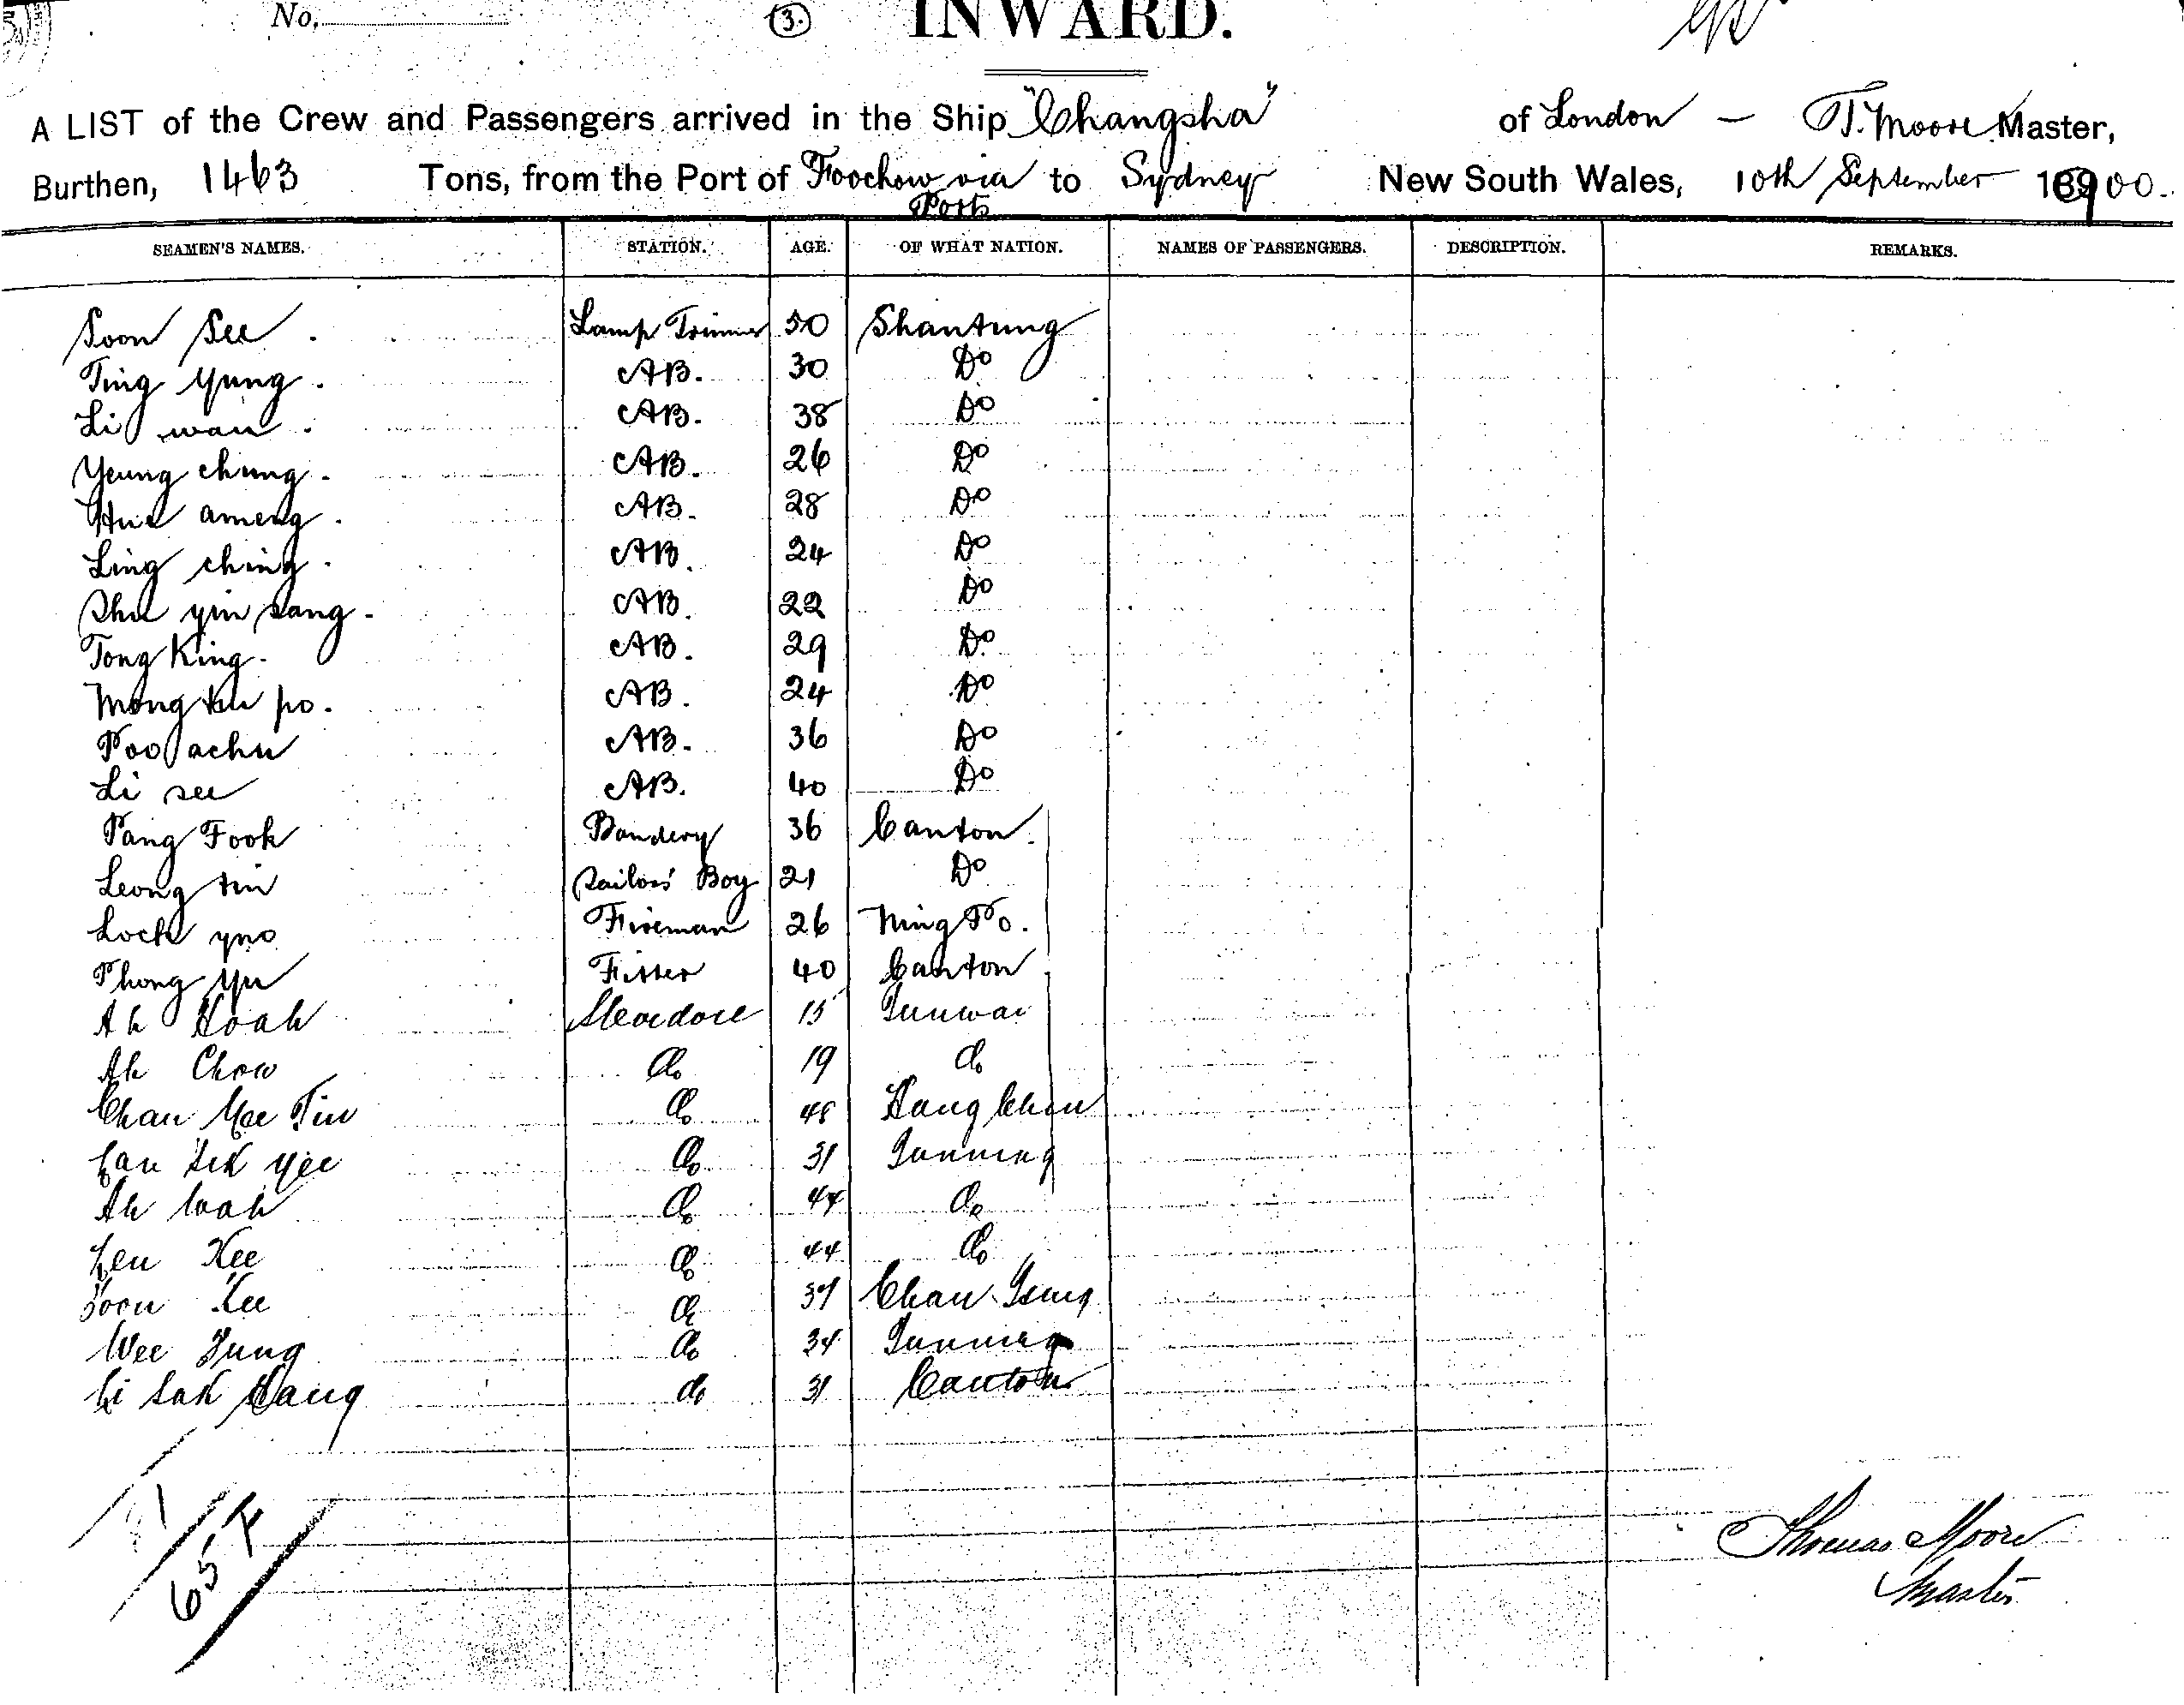 No.
(3.)
INWARD.
A LIST of the Crew and Passengers arrived in the Ship "Changsha" of London — T. Moore Master,
Burthen, 1463 Tons, from the Port of Foochow via Ports to Sydney New South Wales, 10th September 1900.
SEAMEN'S NAMES. STATION. AGE. OF WHAT NATION. NAMES OF PASSENGERS. DESCRIPTION. REMARKS.
Soon See . Lamp Trimmer 50 Shantung
Ting Yung . AB. 30 Do
Li wan . AB. 38 Do
Yeung chung . AB. 26 Do
ameng . AB. 28 Do
Ling ching . AB. 24 Do
yin sang . AB. 22 Do
Tong King . AB. 29 Do
Mong po . AB. 24 Do
Poo achu AB. 36 Do
Li see AB. 40 Do
Pang Fook 36 Canton.
Leong tin Sailors' Boy 21 Do
Lock Fireman 26 Ning Po.
Phong Yu Fitter 40 Canton
Ah Hoah Stevedore 15 Sunwai
Ah Chow do 19 do
Chan Mee Tin do 48
Lau Sek Yee do 31 Sunning
Ah Wah do 44 do
Leu Kee do 44 do
Kee do 37 Chan
Wee Jung do 34 Sunning
Li Sak do 31 Canton
65
Thomas Moore
Master